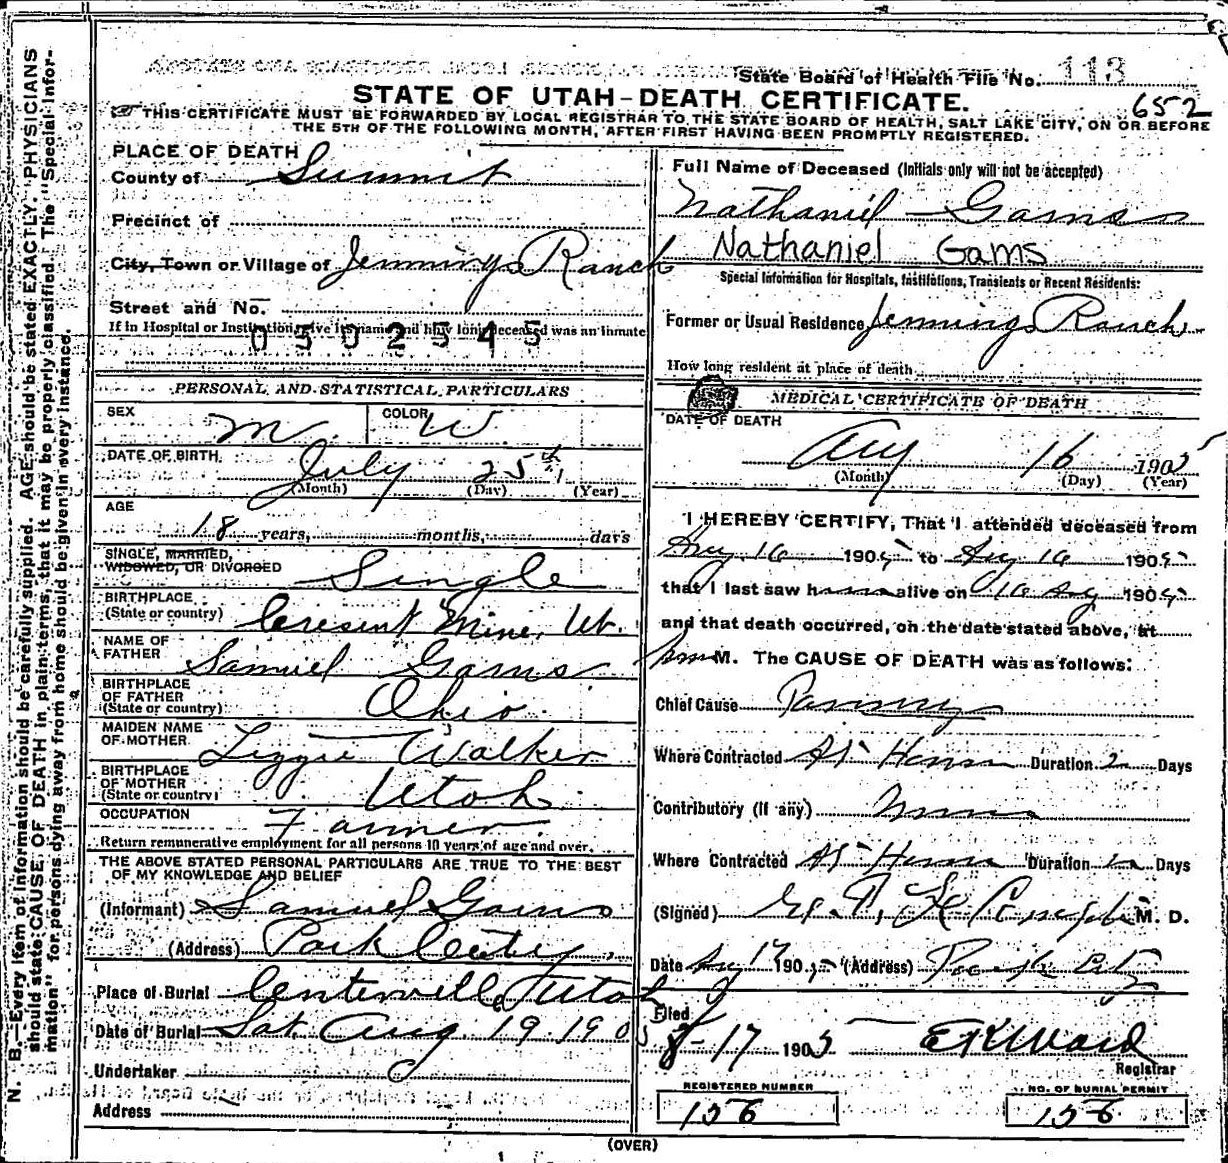 State Board of Health File No. 113
STATE OF UTAH-DEATH CERTIFICATE.
652
THIS CERTIFICATE MUST BE FORWARDED BY LOCAL REGISTRAR TO THE STATE BOARD OF HEALTH, SALT LAKE CITY, ON OR BEFORE
THE 5TH OF THE FOLLOWING MONTH, AFTER FIRST HAVING BEEN PROMPTLY REGISTERED.
N. B.—Every item of information should be carefully supplied. AGE should be stated EXACTLY. PHYSICIANS
should state CAUSE OF DEATH in plain terms, that it may be properly classified. The "Special Infor-
mation" for persons dying away from home should be given in every instance.
PLACE OF DEATH
County of Summit
Precinct of
City, Town or Village of Jennings Ranch
Street and No.
If in Hospital or Institution, give its name and how long deceased was an inmate
0502545
PERSONAL AND STATISTICAL PARTICULARS
SEX M COLOR W.
DATE OF BIRTH July 25th
(Month) (Day) (Year)
AGE
18 years, months, days
SINGLE, MARRIED,
WIDOWED, OR DIVORCED Single
BIRTHPLACE
(State or country) Cresent Mine, Ut.
NAME OF
FATHER Samuel Gams
BIRTHPLACE
OF FATHER
(State or country) Ohio.
MAIDEN NAME
OF MOTHER Lizzie Walker
BIRTHPLACE
OF MOTHER
(State or country) Utah
OCCUPATION Farmer.
Return remunerative employment for all persons 10 years of age and over.
THE ABOVE STATED PERSONAL PARTICULARS ARE TRUE TO THE BEST
OF MY KNOWLEDGE AND BELIEF
(Informant) Samuel Gams
(Address) Park City,
Place of Burial Centervill Utah
Date of Burial Sat Aug 19 1905
Undertaker
Address
Full Name of Deceased (Initials only will not be accepted)
Nathaniel Gams
Nathaniel Gams
Special Information for Hospitals, Institutions, Transients or Recent Residents:
Former or Usual Residence Jennings Ranch
How long resident at place of death
MEDICAL CERTIFICATE OF DEATH
DATE OF DEATH
Aug 16 1905
(Month) (Day) (Year)
I HEREBY CERTIFY, That I attended deceased from
Aug 16 1905 to Aug 16 1905
that I last saw h alive on 16 Aug 1905
and that death occurred, on the date stated above, at
M. The CAUSE OF DEATH was as follows:
Chief Cause
Where Contracted At Home Duration 2 Days
Contributory (If any) None
Where Contracted At Home Duration Days
(Signed) M. D.
Date Aug 17 1905 (Address) Park City
Filed
8-17 1905 EKWard
Registrar
REGISTERED NUMBER
156
NO. OF BURIAL PERMIT
156
(OVER)